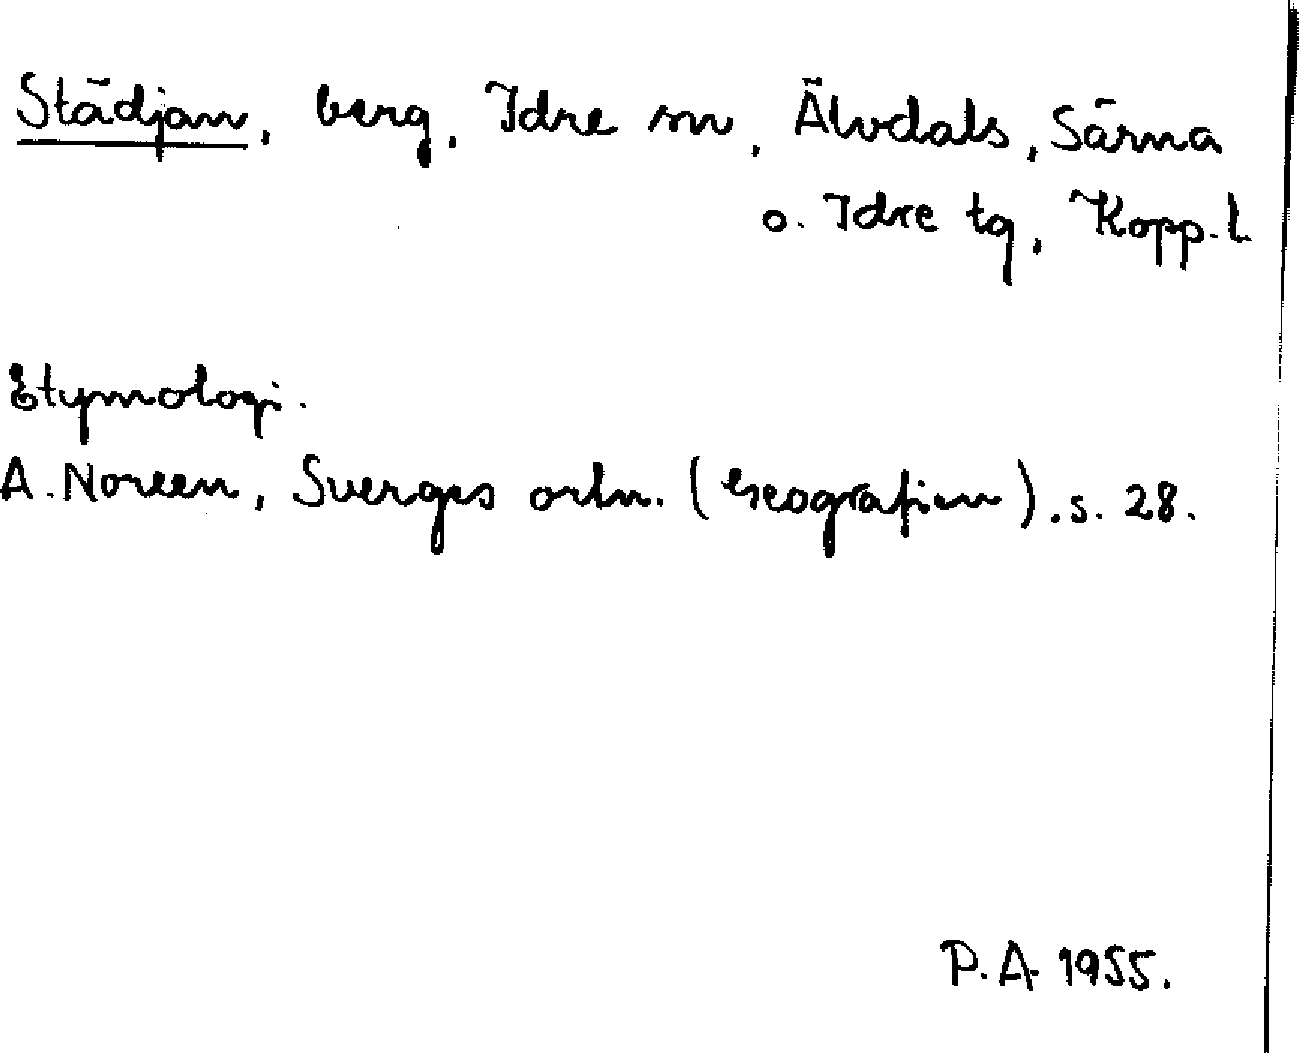 Städjan, berg, Idre sn, Älvdals, Särna
o. Idre tg, Kopp. l.
Etymologi.
A. Noreen, Sverges ortn. (Geografien). s. 28.
P.A. 1955.